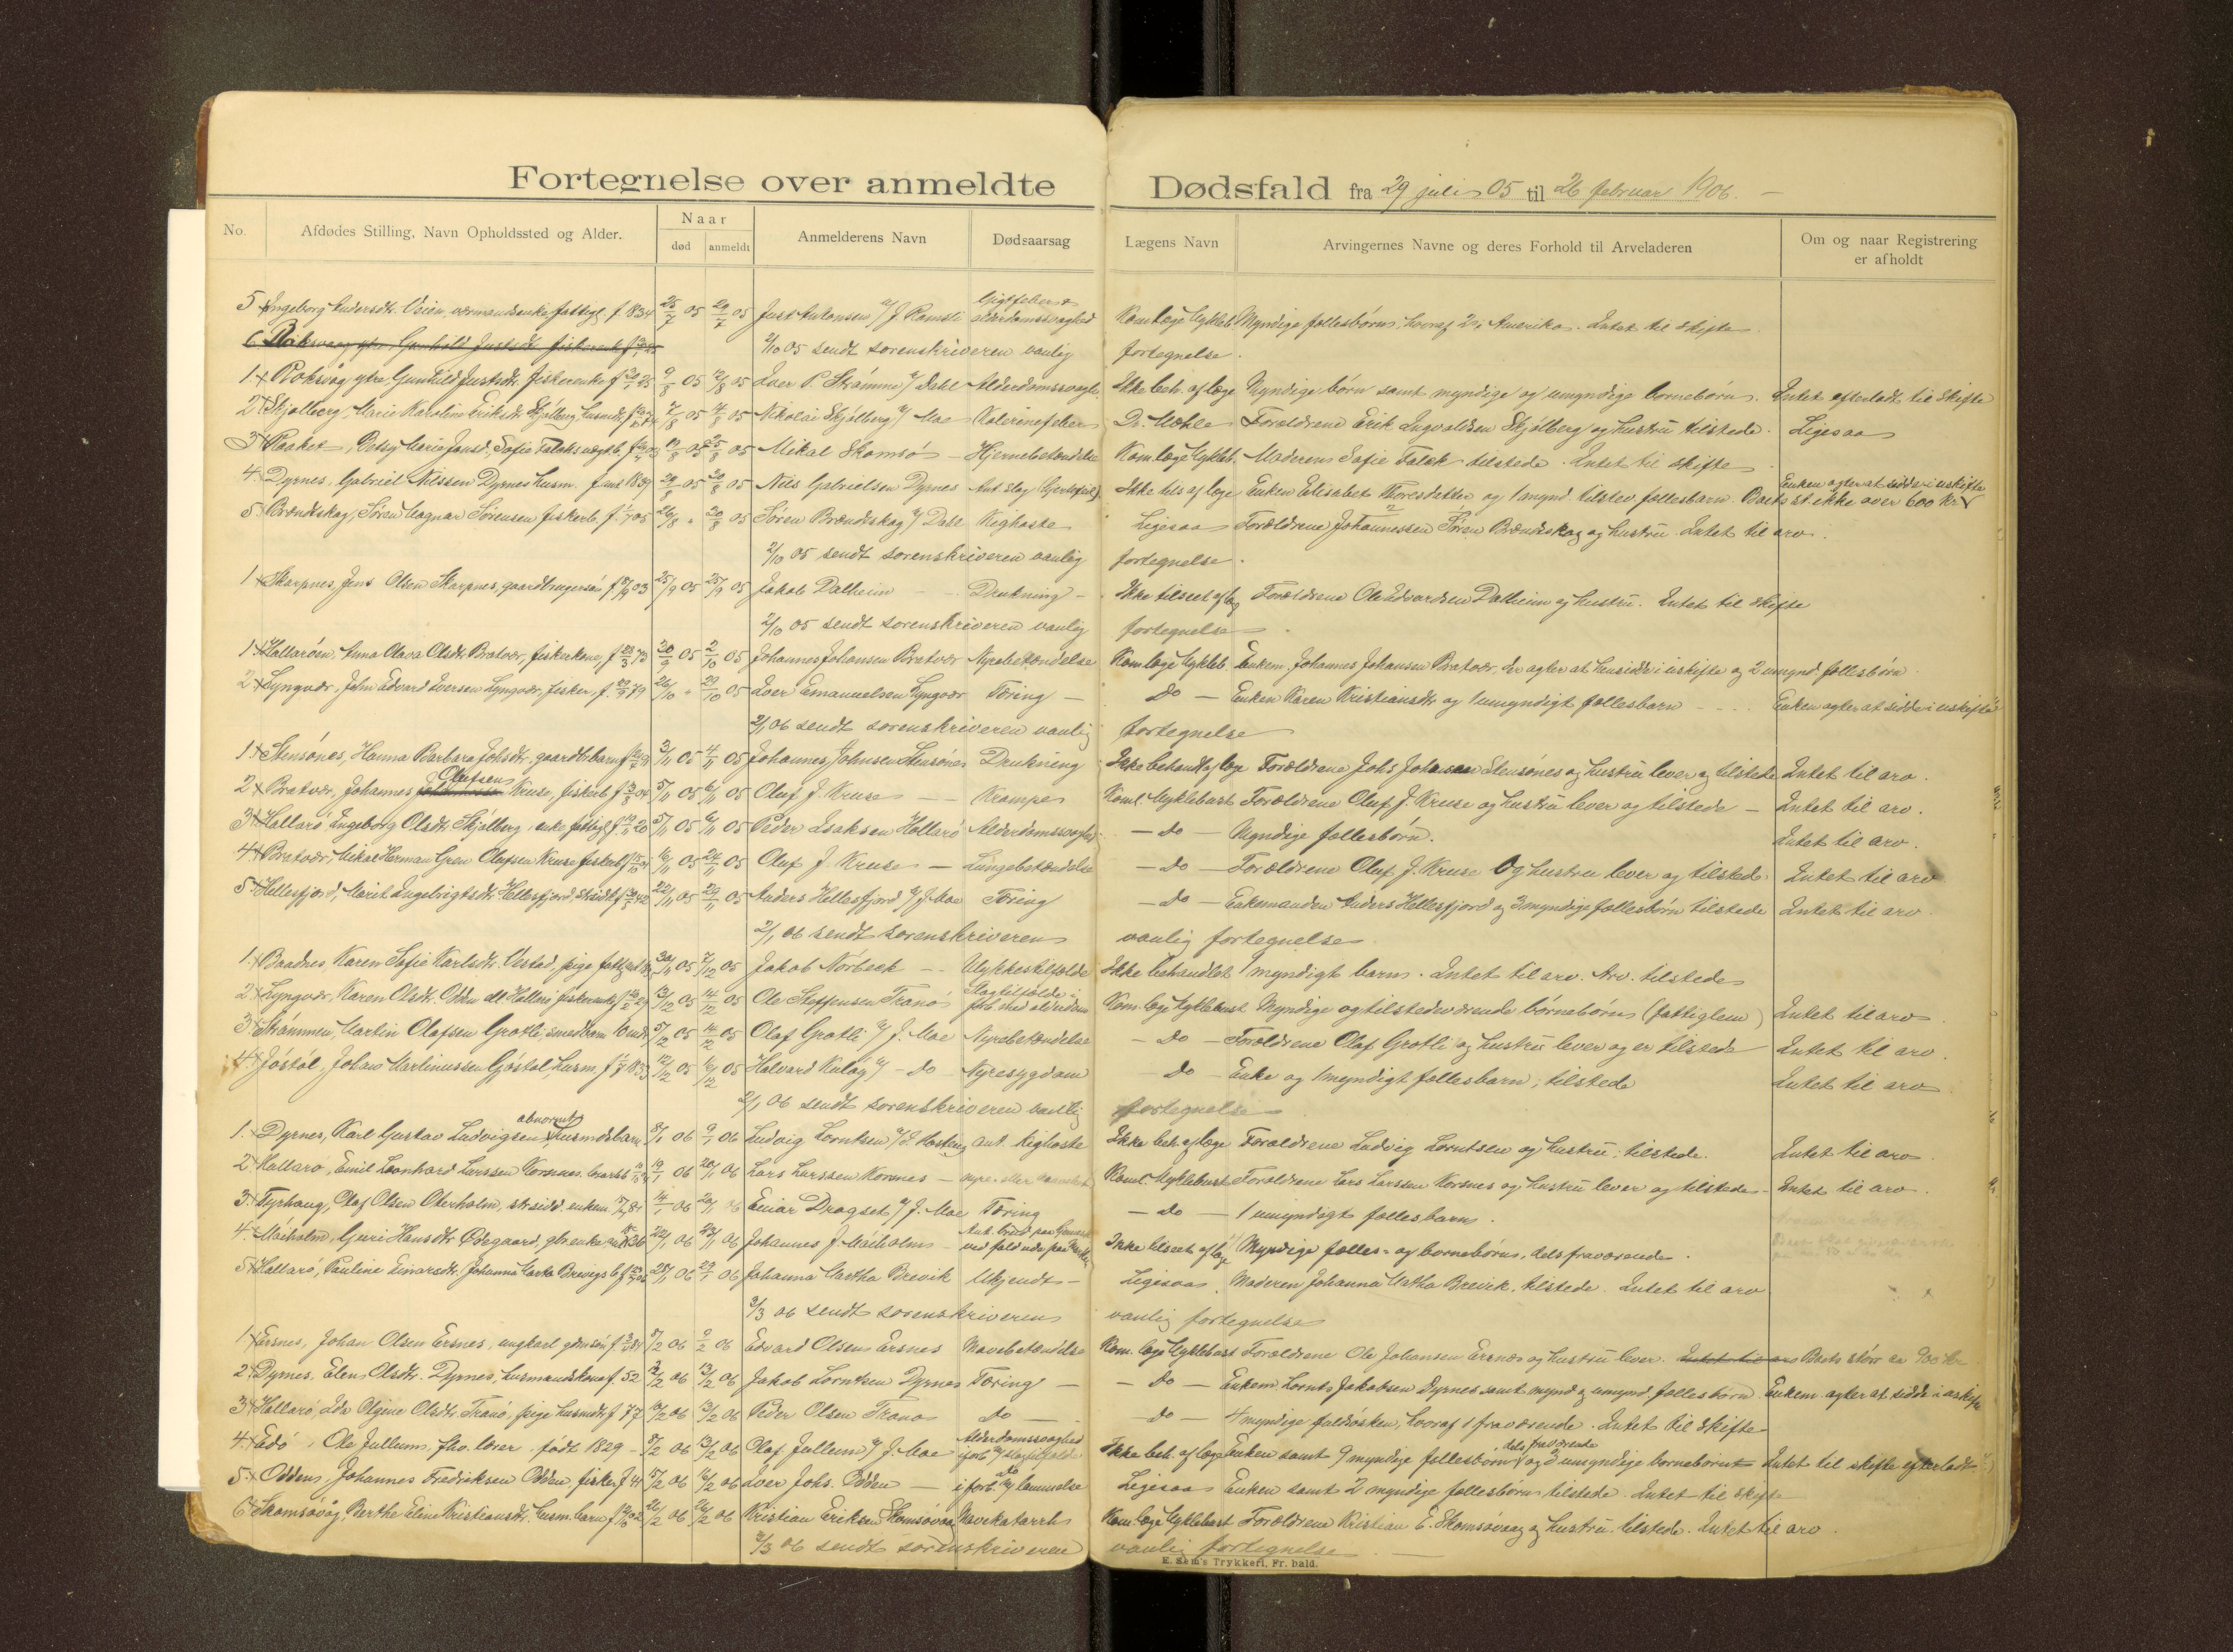 Fortegnelse over anmeldte Dødsfald fra 29 juli 05 til 26 februar 1906.
No. Afdødes Stilling, Navn Opholdssted og Alder. Naar død anmeldt Anmelderens Navn Dødsaarsag Lægens Navn Arvingernes Navne og deres Forhold til Arveladeren Om og naar Registrering er afholdt
5 Ingeborg Andersdtr. fattigl. f. 1834 25/7 05 29/7 05 Just Antonsen v/ J. Ramsli Gigtfeber & alderdomssvaghed Kom.læge Mykleb. Myndige fællesbørn, hvoraf 2 i Amerika. Intet til skifte
6 Gunhild Justsdtr. fiskerenke
2/10 05 sendt sorenskriveren vanlig fortegnelse.
1. Roksvåg ytre, Gunhild Justsdtr. fiskerenke f. 9/8 05 12/8 05 Iver P. Strømme v/ Dahl Alderdomssvagh. Ikke beh. af læge Myndige børn samt myndige og umyndige børnebørn. Intet efterladt til skifte
2 Skjølberg, Marie Karoline Eriksdtr. Skjølberg, husmdtr. 7/8 05 05 Nikolai Skjølberg v/ Moe Kalverinefeber Dr. Mæhle Forældrene Erik Ingvaldsen Skjølberg og hustru tilstede. Ligesaa
3 Betsy Marie Jensd. Sofie Falaks uægte b. 05 25/8 05 Mikal Skomsö Hjernebetændelse Kom.læge Mykleb. Moderen Sofie Falak tilstede. Intet til skifte
4. Dyrnes, Gabriel Nilssen Dyrnes husm. født 1839 29/8 05 30/8 05 Nils Gabrielsen Dyrnes Ant. slag (hjertefeil) Ikke tils af læge Enken Elisabet Thoresdatter og 1 mynd. tilstev. fællesbarn. Enken agter at sidde i uskifte Boets st. ikke over 600 kr.
5. Brændskag, Søren Magnar Sørensen fiskerb. f. 1/7 05 26/8 " 30/8 05 Søren Brændskag v/ Dahl Kighoste Ligesaa Forældrene Johannessen Søren Brændskag og hustru. Intet til arv.
2/10 05 sendt sorenskriveren vanlig fortegnelse.
1 Skarpnes, Jens Olsen Skarpnes, gaardbrugersøn f. 03 25/9 05 25/9 05 Jakob Dalheim Drukning Ikke tilseet af læg Forældrene Ole Edvardsen Dalheim og hustru. Intet til skifte
2/10 05 sendt sorenskriveren vanlig fortegnelse
1 Hallarøen, Anna Olava Olsdtr. Bratvær, fiskerkone, f. 73 30/9 05 2/10 05 Johannes Johansen Bratvær Nyrebetændelse Kom.læge Mykleb. Enkem. Johannes Johansen Bratvær, der agter at hensidde i uskifte og 2 umynd. fællesbørn.
2 Lyngvær, John Edvard Iversen Lyngvær, fisker, f. 79 26/10 " 29/10 05 Iver Emanuelsen Lyngvær Tæring Do Enken Karen Kristiansdtr og 1 umyndigt fællesbarn Enken agter at sidde i uskifte
2/1 06 sendt sorenskriveren vanlig fortegnelse
1. Stensönes, Hanna Barbara Johsdtr. gaardbr.barn 3/11 05 4/11 05 Johannes Johnsen Stensönes Drukning Ikke behandlt af læge Forældrene Johs Johansen Stensönes og hustru lever og tilstede Intet til arv.
2 Bratvær, Johannes Olufsen Kruse, fiskerb. 5/11 05 6/11 05 Oluf J. Kruse Krampe Koml. Myklebust Forældrene Oluf J. Kruse og hustru lever og tilstede Intet til arv.
3 Hallarö Ingeborg Olsdtr Skjølberg, enke, fattigl. f. 20 5/11 05 6/11 05 Peder Isaksen Hallarö Alderdomssvaghed do Myndige fællesbørn. Intet til arv.
4 Bratvær, Mikal Herman Gren Olufsen Kruse fiskerb. 16/11 05 05 Oluf J. Kruse Lungebetændelse do Forældrene Oluf J. Kruse Og hustru lever og tilstede Intet til arv
5. Hellesfjord, Marit Ingebrigtsdtr. Hellesfjord, 22/11 05 29/11 05 Anders Hellesfjord v/ J. Moe Tæring do Enkemanden Anders Hellesfjord og 3 myndige fællesbørn tilstede Intet til arv.
2/1 06 sendt sorenskriveren vanlig fortegnelse
1. Baadnes, Karen Sofie Karlsdtr. Ustad, pige, 30/11 05 7/12 05 Jakob Norbæk Ulykkestilfælde Ikke behandlet 1 myndigt barn. Intet til arv. Arv. tilstede
2 Lyngvær, Karen Olsdtr. Odden alt Hallerö fiskerenke 13/12 05 14/12 05 Ole Steffensen Tranö Slagtilfælde i forb. med alderdom Kom.læge Myklebust Myndige og tilstedeværende børnebørn (fattiglem) Intet til arv
3 Strømmen, Martin Olafsen Grotle, smedbarn 10 mdr. 5/12 05 14/12 05 Olaf Grotli v/ J. Moe Nyrebetændelse Do Forældrene Olaf Grotli og hustru lever og er tilstede Intet til arv.
4 Jöstöl, Johan Martinussen Gjöstöl, husm. f. 1833 12/12 05 16/12 05 Halvard Kuløy v/ do Nyresygdom Do Enke og 1 myndigt fællesbarn, tilstede Intet til arv
2/1 06 sendt sorenskriveren vanlig fortegnelse
1. Dyrnes, Karl Gustav Ludvigsen abnormt husmdsbarn 8/1 06 9/1 06 Ludvig Lorntsen ant. kighoste Ikke beh. af læge Forældrene Ludvig Lorntsen og hustru; tilstede. Intet til arv
2 Hallarö, Emil Leonhard Larssen Korsnes. 19/1 06 20/1 06 Lars Larssen Korsnes Koml. Myklebust Forældrene Lars Larssen Korsnes og hustru lever og tilstede Intet til arv.
3. Tyrhaug, Olaf Olsen Oterholm, 14/1 06 20/1 06 Einar Dragset v/ J. Moe Tæring do 1 umyndigt fællesbarn.
4. Möiholm, Guri Hansdtr. Ødegaard, gb. enke 22/1 06 23/1 06 Johannes J. Möiholm Ikke tilseet af læge Myndige fælles- og børnebørn, dels fraværende.
5 Hallarö, Pauline Einarsdtr. Johanna Marta Brevigs b. 28/1 06 29/1 06 Johanna Martha Brevik Ukjendt Ligesaa. Moderen Johanna Matha Brevik, tilstede. Intet til arv
3/3 06 sendt sorenskriveren vanlig fortegnelse
1 Ersnes, Johan Olsen Ersnes, ungkarl 8/2 06 9/2 06 Edvard Olsen Ersnes Mavebetændelse Kom.læge Myklebust Forældrene Ole Johansen Ersnes og hustru lever. Intet til arv Boets større ca 900 kr.
2 Dyrnes, Elen Olsdtr. Dyrnes, husmandskone f. 52 12/2 06 13/2 06 Jakob Lorntsen Dyrnes Tæring Do Enkem. Lornts Jakobsen Dyrnes samt mynd. og umynd. fællesbørn. Enkem. agter at sidde i uskifte
3 Hallarö, Ida Olgine Olsdtr. Tranö, pige, husmdtr. f. 77 10/2 06 13/2 06 Peder Olsen Tranö do do 4 myndige fuldsøsken, hvoraf 1 fraværende. Intet til skifte
4. Edö, Ole Jullum, fhv. lærer, født 1829 8/2 06 13/2 06 Olaf Jullum v/ J. Moe Alderdomssvaghed i forb. m/ slagtilfælde Ikke beh. af læge Enken samt 9 myndige fællesbørn, dels fraværende og 3 umyndige børnebørn Intet til skifte efterladt
5. Odden, Johannes Fredriksen Odden, fisker f. 41 15/2 06 16/2 06 Iver Johs. Odden do i forb. m/ lammelse Ligesaa Enken samt 2 myndige fællesbørn tilstede. Intet til skifte
6 Skomsövåg, Berthe Eline Kristiansdtr. husm. barn 26/2 06 26/2 06 Kristian Eriksen Skomsövaag Mavekatarrh Kom.læge Myklebust Forældrene Kristian E. Skomsövaag og hustru tilstede. Intet til arv.
3/3 06 sendt sorenskriveren vanlig fortegnelse
E. Sem's Trykkeri, Fr. hald.